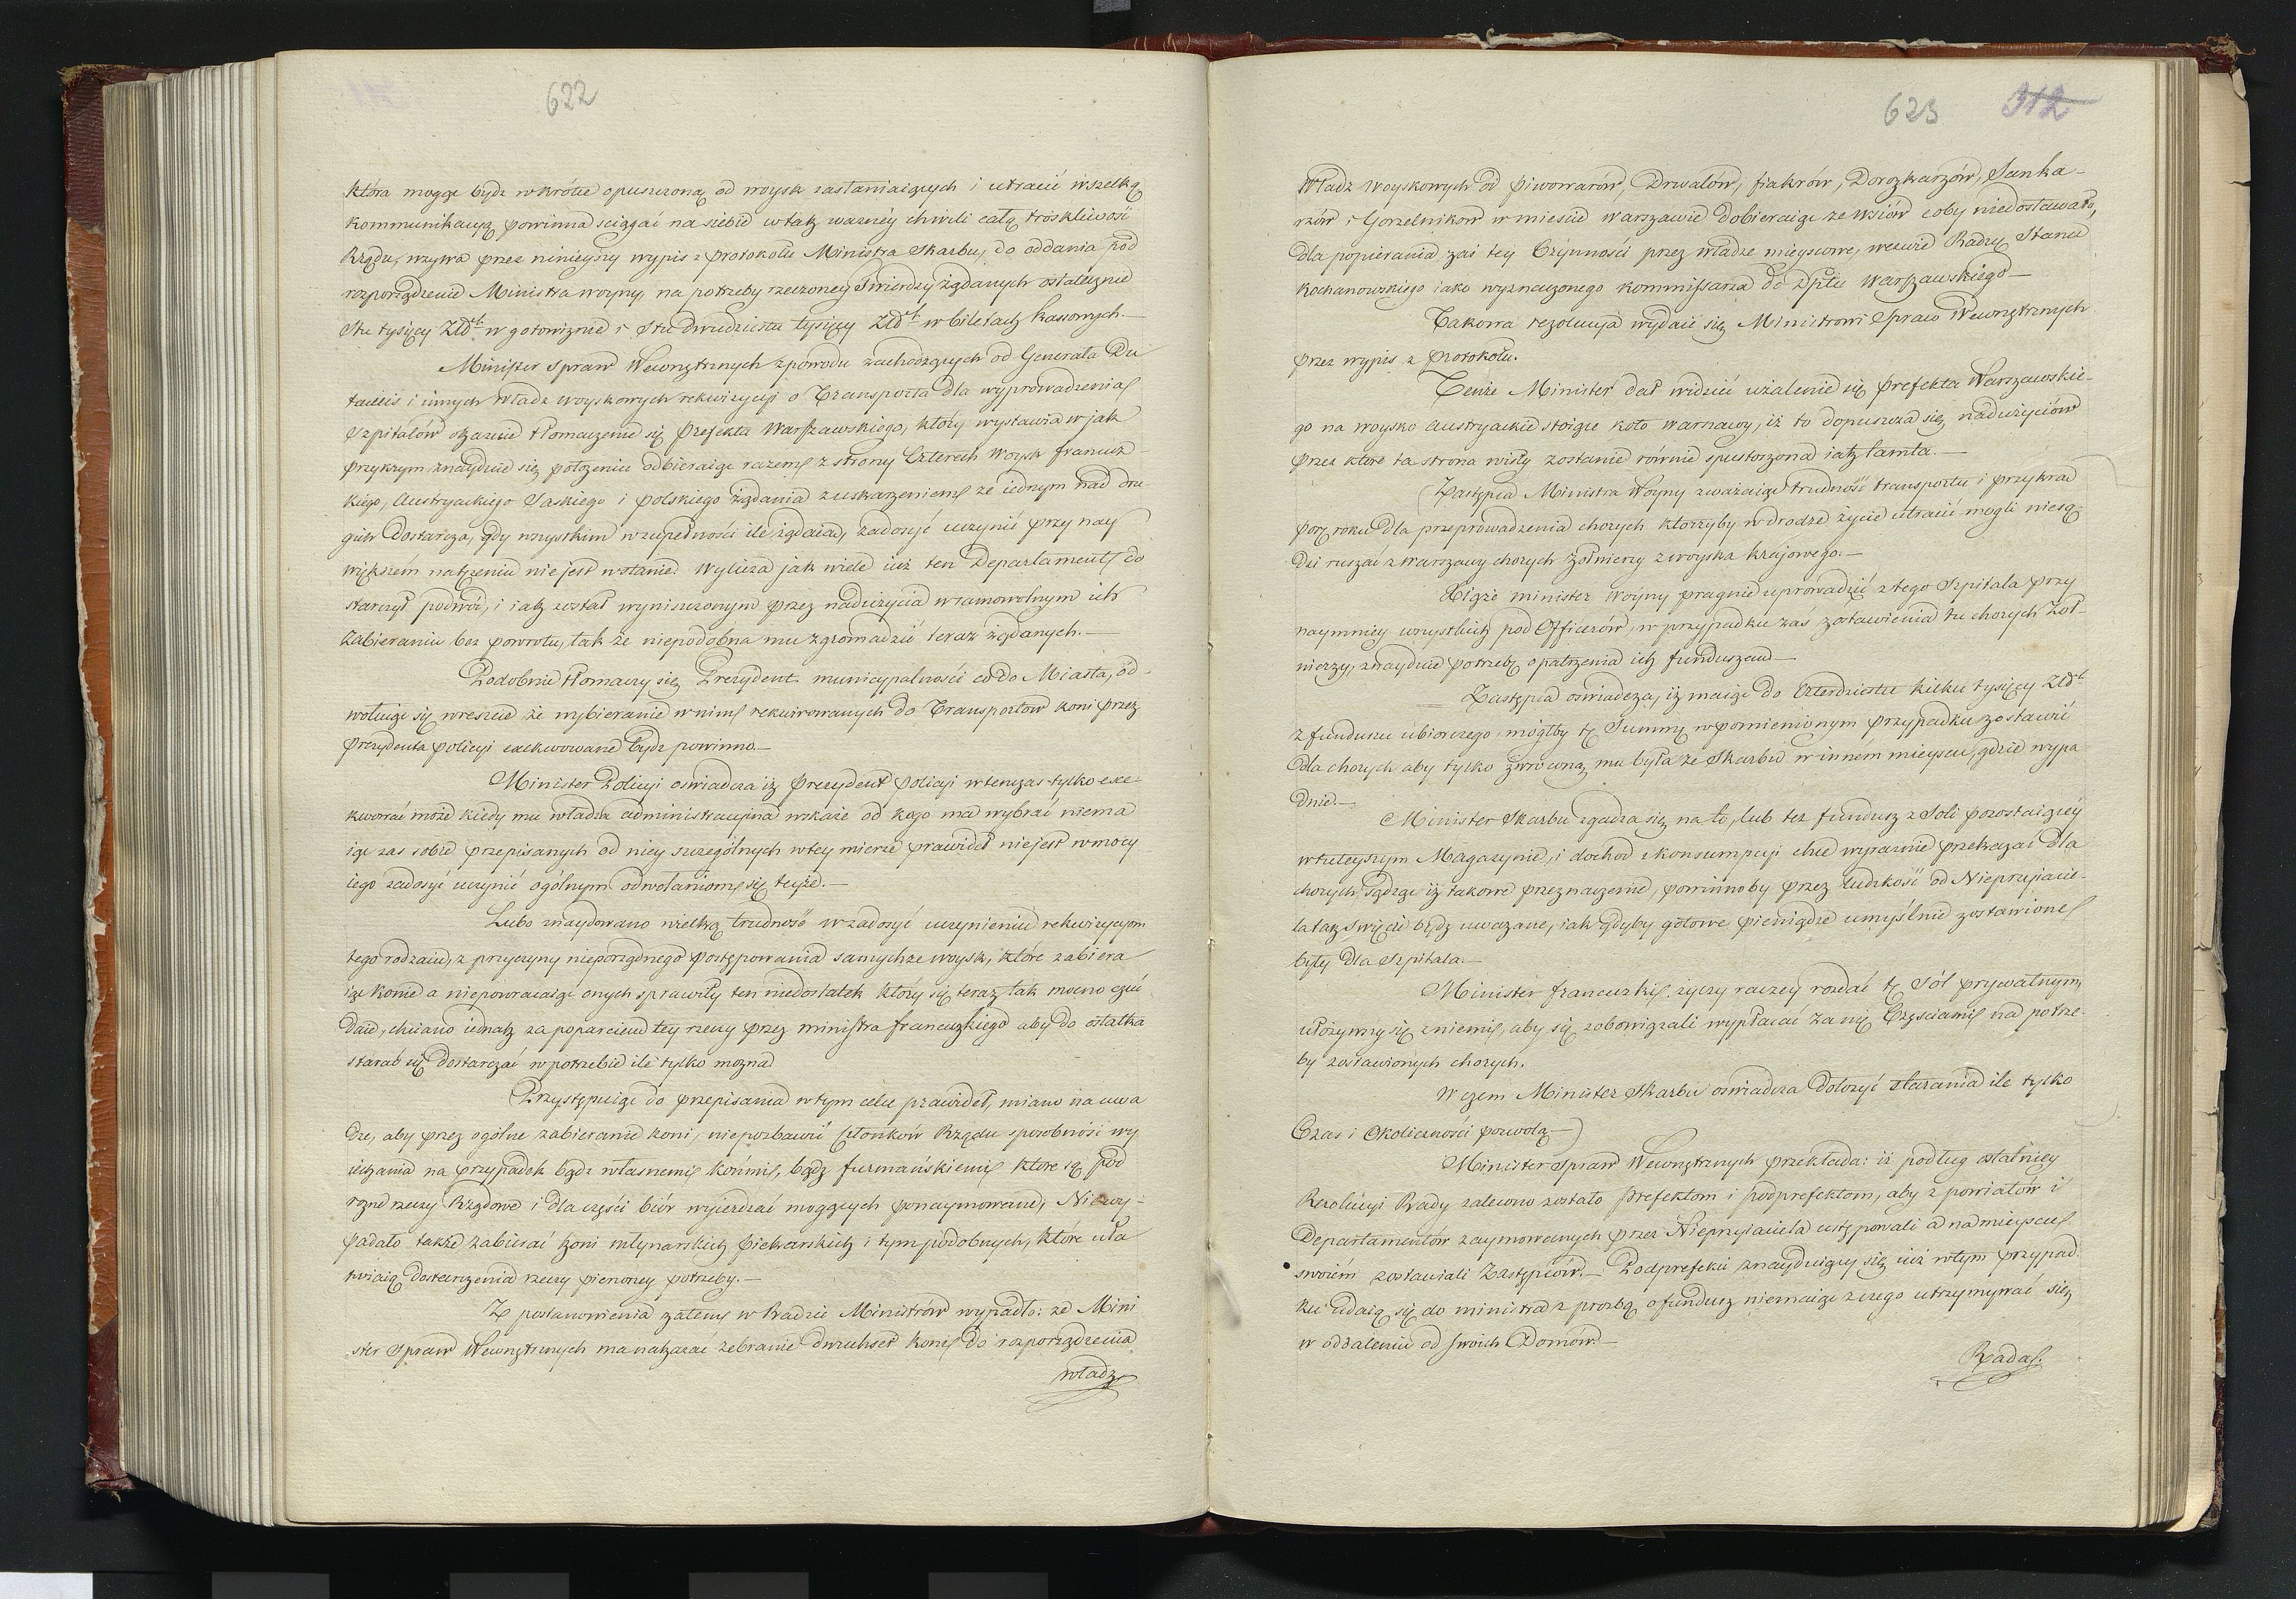 622
która mogąc bydź wkrótce opuszczoną od woysk zasłaniaiących i utracić wszelką
kommunikacyą powinna sciągać na siebie w tak ważney chwili całą troskliwość
Rządu, wzywa przez ninieyszy wypis z protokołu Ministra Skarbu, do oddania pod
rozporządzenie Ministra woyny, na potrzeby rzeczoney Twierdzy żądanych ostatecznie
Stu tysięcy Złd w gotowiznie i Stu dwudziestu tysięcy Złd w biletach kassowych.—
Minister Spraw Wewnętrznych z powodu zachodzących od Generała Du
taillis i innych Władz woyskowych rekwizycyi o Transporta dla wyprowadzenia
Szpitalów okazuie tłomaczenie się Prefekta Warszawskiego, który wystawia w jak
przykrym znayduie się położeniu odbieraiąc razem z strony Czterech Woysk francuz-
kiego, Austryackiego Saskiego i polskiego żądania z uskarżeniem że iednym nad dru
gich dostarcza, gdy wszystkim w zupełności ile żądaią, zadosyć uczynić przy nay
większém natężeniu nie jest w stanie. Wylicza jak wiele iuż ten Departament do
starczył podwód, i iak został wyniszczonym przez nadużycia w samowolnym ich
zabieraniu bez powrotu, tak że niepodobna mu zgromadzić teraz żądanych.—
Podobnie tłomaczy się Prezydent municypalności co do Miasta, od-
wołuiąc się wreszcie że wybieranie w nim rekwirowanych do Transportów koni przez
Prezydenta policyi exekwowane bydź powinno.—
Minister Policyi oświadcza iż Prezydent policyi wtenczas tylko exe-
kwować może kiedy mu władza administracyina wskaże od kogo ma wybrać niema
iąc zas sobie przepisanych od niey szczególnych w tey mierze prawideł nie jest w mocy
iego zadosyć uczynić ogólnym odwołaniom się teyże.—
Lubo znaydowano wielką trudność w zadosyć uczynieniu rekwizycyom
tego rodzaiu, z przyczyny nieporządnego postępowania samychże woysk, które zabiera
iąc konie a niepowracaiąc onych sprawiły ten niedostatek który się teraz tak mocno czuć
daie, chciano iednak za poparciem tey rzeczy przez ministra francuzkiego aby do ostatka
starać się dostarczać w potrzebie ile tylko można
Przystępuiąc do przepisania w tym celu prawideł, miano na uwa
dze, aby przez ogólne zabieranie koni, niepozbawić Członków Rządu sposobności wy
iechania na przypadek bądz własnemi końmi, bądz furmańskiemi które są pod
rożne rzeczy Rządowe i dla części biór wyjeżdżać mogących ponaymowane, Niewy-
padało także zabierać koni młynarskich piekarskich i tym podobnych, które uła
twiaią dostarczenia rzeczy pierwszey potrzeby.—
Z postanowienia zatem w Radzie Ministrów wypadło: że Mini
ster Spraw Wewnętrznych ma nakazać zebranie dwuchset koni do rozporządzenia
władz
623 312
Władz woyskowych od piwowarów, Drwalów, fiakrów, Dorożkarzów, Sanka-
rzów i Gorzelników w mieście Warszawie dobieraiąc ze wsiów coby niedostawało,
dla popierania zaś tey Czynności przez władze mieyscowe, wezwie Radzcę Stanu
Kochanowskiego iako wyznaczonego kommissarza do Dptu Warszawskiego—
Takowa rezolucya wydaie się Ministrowi Spraw Wewnętrznych
przez wypis z protokołu.
Tenże Minister dał widzieć użalenie się Prefekta Warszawskie-
go na woysko Austryackie stoiące koło Warszawy, iż to dopuszcza się nadużyciów
przez które ta strona wisły zostanie równie spustoszona iak tamta.—
(Zastępca Ministra Woyny zważaiąc trudność transportu i przykrą
porę roku dla przeprowadzenia chorych którzyby w drodze życie utracić mogli niesą-
dzi ruszać z Warszawy chorych żołnierzy z woyska krajowego.—
Xiąże minister Woyny pragnie uprowadzić z tego Szpitala przy
naymniey wszystkich pod Officerów, w przypadku zaś zostawienia tu chorych żoł-
nierzy, znayduie potrzebę opatrzenia ich funduszem—
Zastępca oświadcza, iż maiąc do Czterdziestu kilku tysięcy Złd
z funduszu ubiorczego mógłby tę Summę w pomienionym przypadku zostawić
dla chorych aby tylko zwróconą mu była ze Skarbu w innem mieyscu, gdzie wypa
dnie.—
Minister Skarbu zgadza się na to, lub też fundusz z Soli pozostaiącéy
w tuteyszym Magazynie, i dochod z konsumpcyi chce wyraźnie przekazać dla
chorych sądząc iż takowe przeznaczenie, powinnoby przez ludzkość od Nieprzyiacie-
la tak święcie bydz uważane, iak gdyby gotowe pieniądze umyślnie zostawione
były dla Szpitala.—
Minister francuzki życzy raczey rozdać tę Sól prywatnym,
ułożywszy się z niemi, aby się zobowiązali wypłacać za nię Częściami na potrze-
by zostawionych chorych.
W czem Minister Skarbu oświadcza dołożyć starania ile tylko
Czas i Okoliczności pozwolą—)
Minister Spraw Wewnętrznych przekłada: iż podług ostatniey
Rezolucyi Rady zalecono zostało Prefektom i podprefektom, aby z powiatów i
Departamentów zaymowanych przez Nieprzyiaciela ustępowali a na mieyscu
swoiém zostawiali Zastępców.— Podprefekci znayduiący się iuż w tym przypad-
ku udaią się do ministra z prozbą o fundusz niemaiąc z czego utrzymywać się
w oddaleniu od swoich Domów.—
Rada.